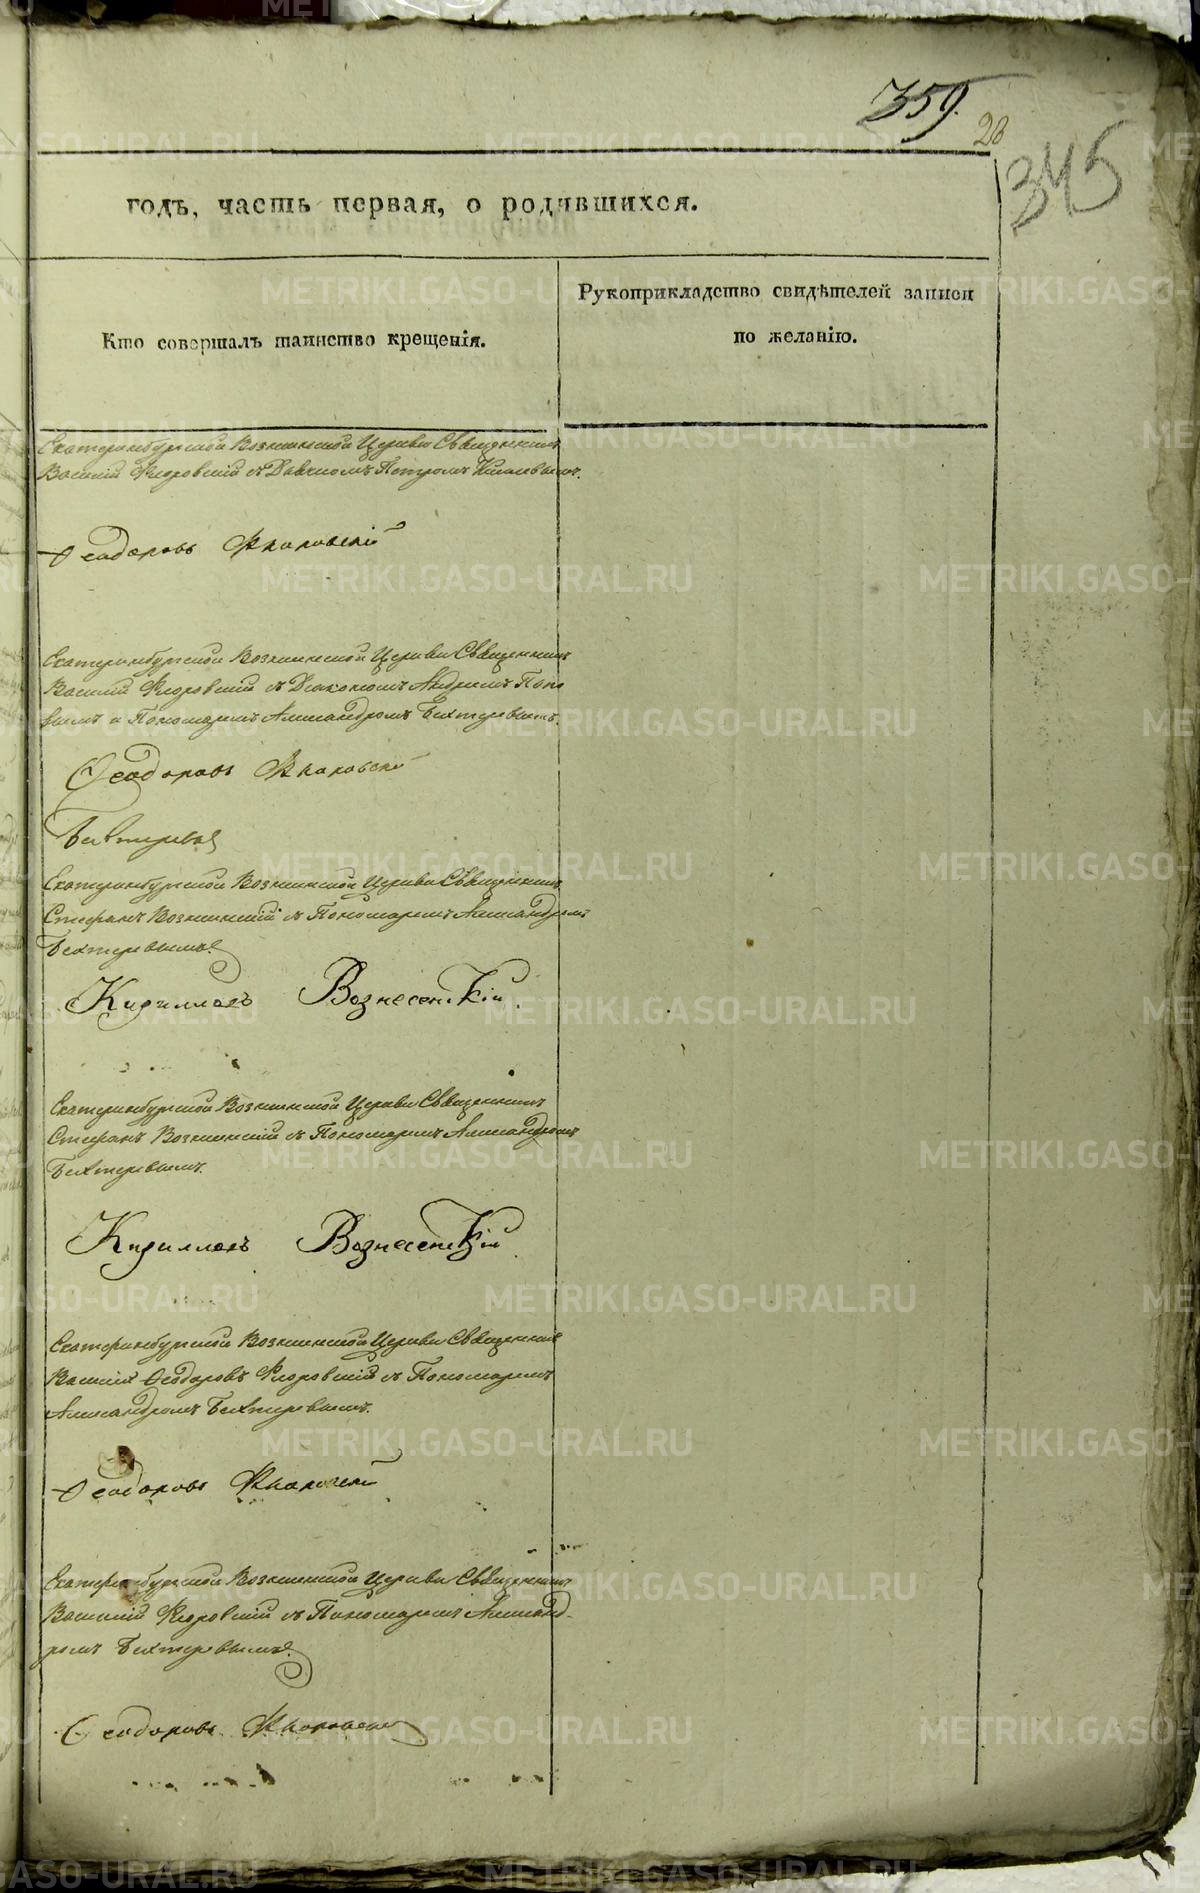 359.
28
345
годъ, часть первая, о родившихся.
Кто совершалъ таинство крещенія.
Рукоприкладство свидѣтелей записи
по желанію.
Екатеринбургской Вознесенской Церкви Священникъ
Василій Флоровскій съ Дьячкомъ Петромъ
Ѳеодоровъ Флоровскій
Екатеринбургской Вознесенской Церкви Священникъ
Василій Флоровскій съ Діакономъ Андреемъ Попо
вымъ и Пономаремъ Александромъ Бехтеревымъ.
Ѳеодоровъ Флоровскій
Бехтеревъ
Екатеринбургской Вознесенской Церкви Священникъ
Стефанъ Вознесенскій съ Пономаремъ Александромъ
Бехтеревымъ.
Кирилловъ Вознесенскій.
Екатеринбургской Вознесенской Церкви Священникъ
Стефанъ Вознесенскій съ Пономаремъ Александромъ
Бехтеревымъ.
Кирилловъ Вознесенскій
Екатеринбургской Вознесенской Церкви Священникъ
Василій Ѳеодоровъ Флоровскій съ Пономаремъ
Александромъ Бехтеревымъ.
Ѳеодоровъ Флоровскій
Екатеринбургской Вознесенской Церкви Священникъ
Василій Флоровскій съ Пономаремъ Александ-
ромъ Бехтеревымъ.
Ѳеодоровъ Флоровскій
METRIKI.GASO-URAL.RU